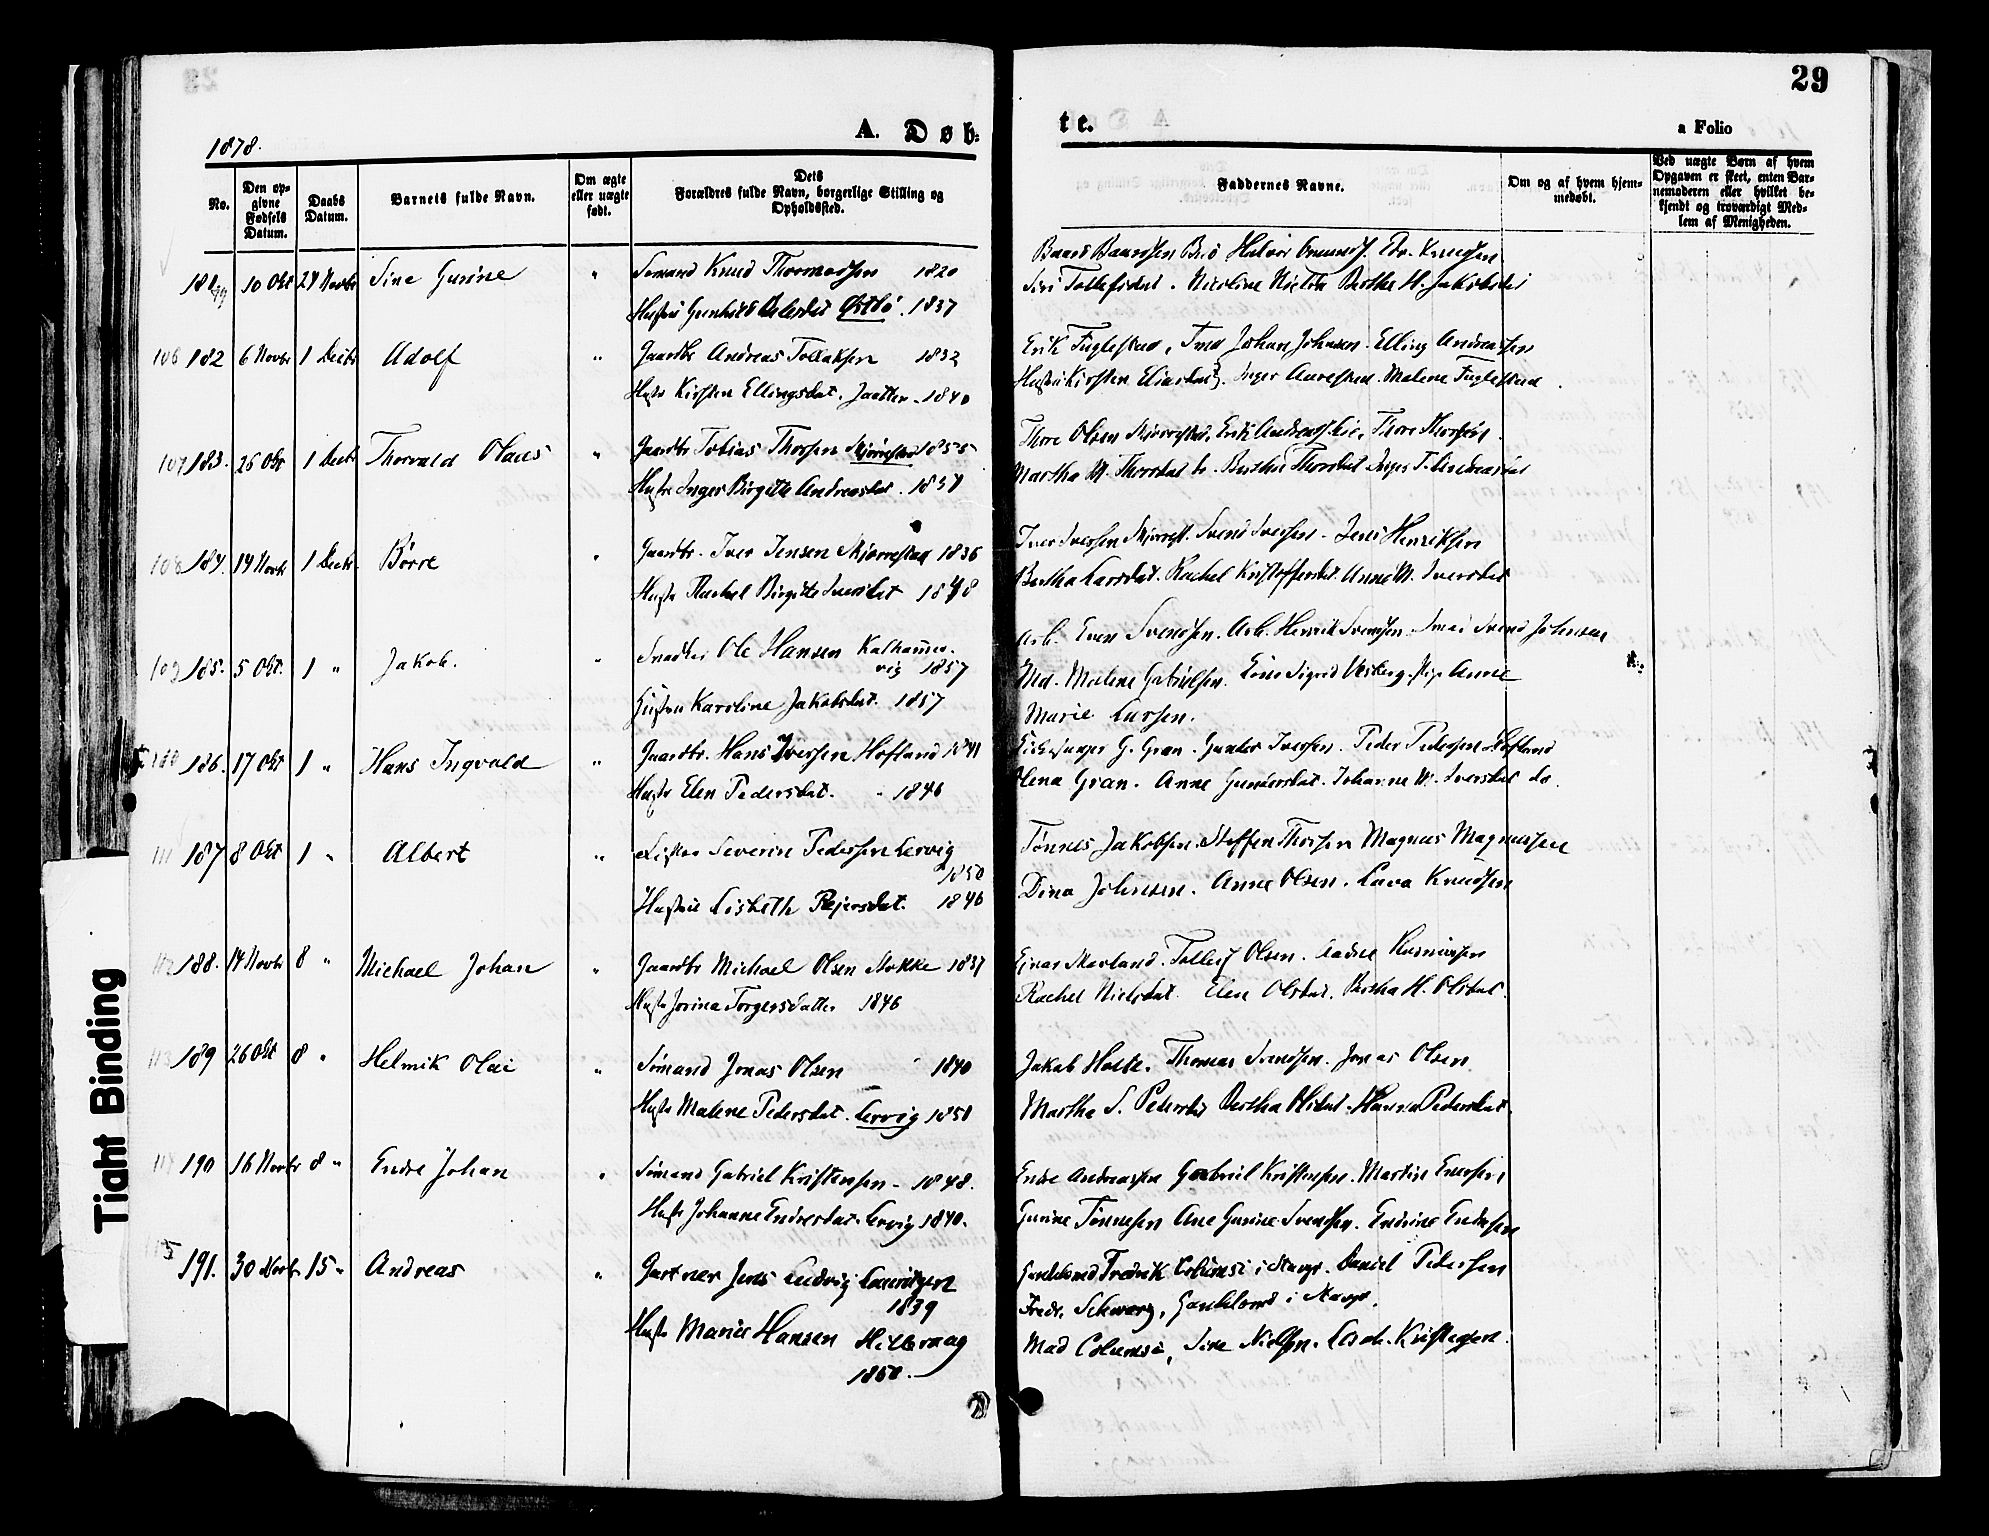 29
1878.
A. Døb-
te.
a Folio
No.
Den op-
givne
Fødsels
Datum.
Daabs
Datum.
Barnets fulde Navn.
Om ægte
eller uægte
født.
Dets
Forældres fulde Navn, borgerlige Stilling og
Opholdssted.
Faddernes Navne.
Om og af hvem hjem-
medøbt.
Ved uægte Børn af hvem
Opgaven er skeet, enten Bar-
nemoderen eller hvilket be-
kjendt og troværdigt Med-
lem af Menigheden.
181 10 Okt 24 Novbr Sine Gurine " Sømand Knud Thormodsen 1820
Hustru Gunhild 1837
Nicoline Bertha H. Jakobsdt
106 182 6 Novbr 1 Decbr Adolf " Gaardbr Andreas Tollaksen 1832
Hustr Kirsten Ellingsdat. Jaatten - 1840
Erik Fuglestad, Johan Johnsen. Elling Andreassen
Hustru Kirsten Eliasdat. Inger Aurestad. Malene Fuglestad
107 183. 26 Okt 1 Decbr Thorvald Olaus " Gaardbr Tobias Thorsen 1855
Hustr Inger Birgitte Andreasdat. 1857
Thore Olsen Thore Thorsen
Martha M. Thorsdat do. Berthe Thorsdat Inger T. Andreasdat
108 184. 14 Novbr 1 Decbr Børre " Gaardbr. Iver Jensen Skjørrestad 1836
Hustr Rachel Birgitte 1848
Iver Iversen Skjørrest. Svend Iversen. Jens Henriksen
Bertha Larsdat. Rachel Kristoffersdat. Anne M. Iversdat
109 185. 5 Okt. 1 " Jakob. " Snedker Ole Hansen Kalhammer-
vig 1857
Hustru Karoline Jakobsdat. 1857
Arb. Even Svendsen. Arb. Henrik Svendsen. Svend Johnsen
Md. Malene Gabrielsen. Sigrid Vesberg. Pige Anne
Marie Larsen.
186. 17 Okt 1 " Hans Ingvald " Gaardbr. Hans Iversen Hofland 1841
Hustr Elen Pedersdat. " 1846
Kirkesanger G. Gran. Gunder Iversen. Peder Pedersen Hofland
Olena Gran. Anne Gundersdat. Johanne M. Iversdat do.
111 187 8 Okt 1 " Albert " Severin Pedersen Lervig
1850
Hustru Lisbeth Rejersdat. 1846
Tønnes Jakobsen. Steffen Thorsen Magnus Magnussen
Dina Johnsen. Anne Olsen. Lava Knudsen
112 188. 14 Novbr 8 " Michael Johan " Gaardbr Michael Olsen Stokke 1837
Hustr Jorina Torgersdatter 1846
Ejvar Tollef Olsen. Aadne Rasmussen
Rachel Nielsdat. Elen Olsdat. Bertha H. Olsdat.
113 189 26 Okt 8 " Helmik Olai " Sømand Jonas Olsen 1840
Hustr Malene Pedersdat. Lervig 1850
Jakob Holte. Thomas Svendsen. Jonas Olsen
Martha S. Bertha Olsdat. Hanna Pedersdat.
114 190 16 Novbr 8 " Endre Johan " Sømand Gabriel Kristensen - 1848.
Hustr Johanne Endresdat. Lervig 1840.
Endre Andreassen Gabriel Kristensen. Martin Enersen
Gurine Tønnesen Ane Gurine Svendsen. Endrine Endresen
115 191. 30 Novbr 15 " Andreas " Gartner Jens Ludvig Lauritzen
1839
Hustr Marie Hansen Hillevaag
1850.
Fredrik Columsi i Stavgr. Daniel Pedersen
Fredr. Schwarz, i Stavgr.
Mad Columsi, Sine Nielsen.
Tight Binding